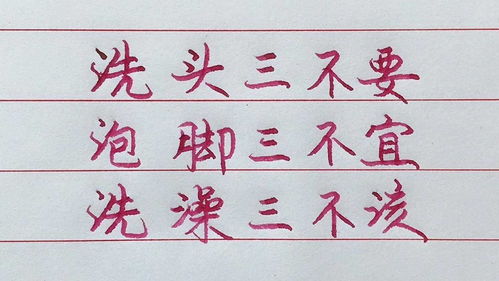 洗头三不要
泡脚三不宜
洗澡三不该